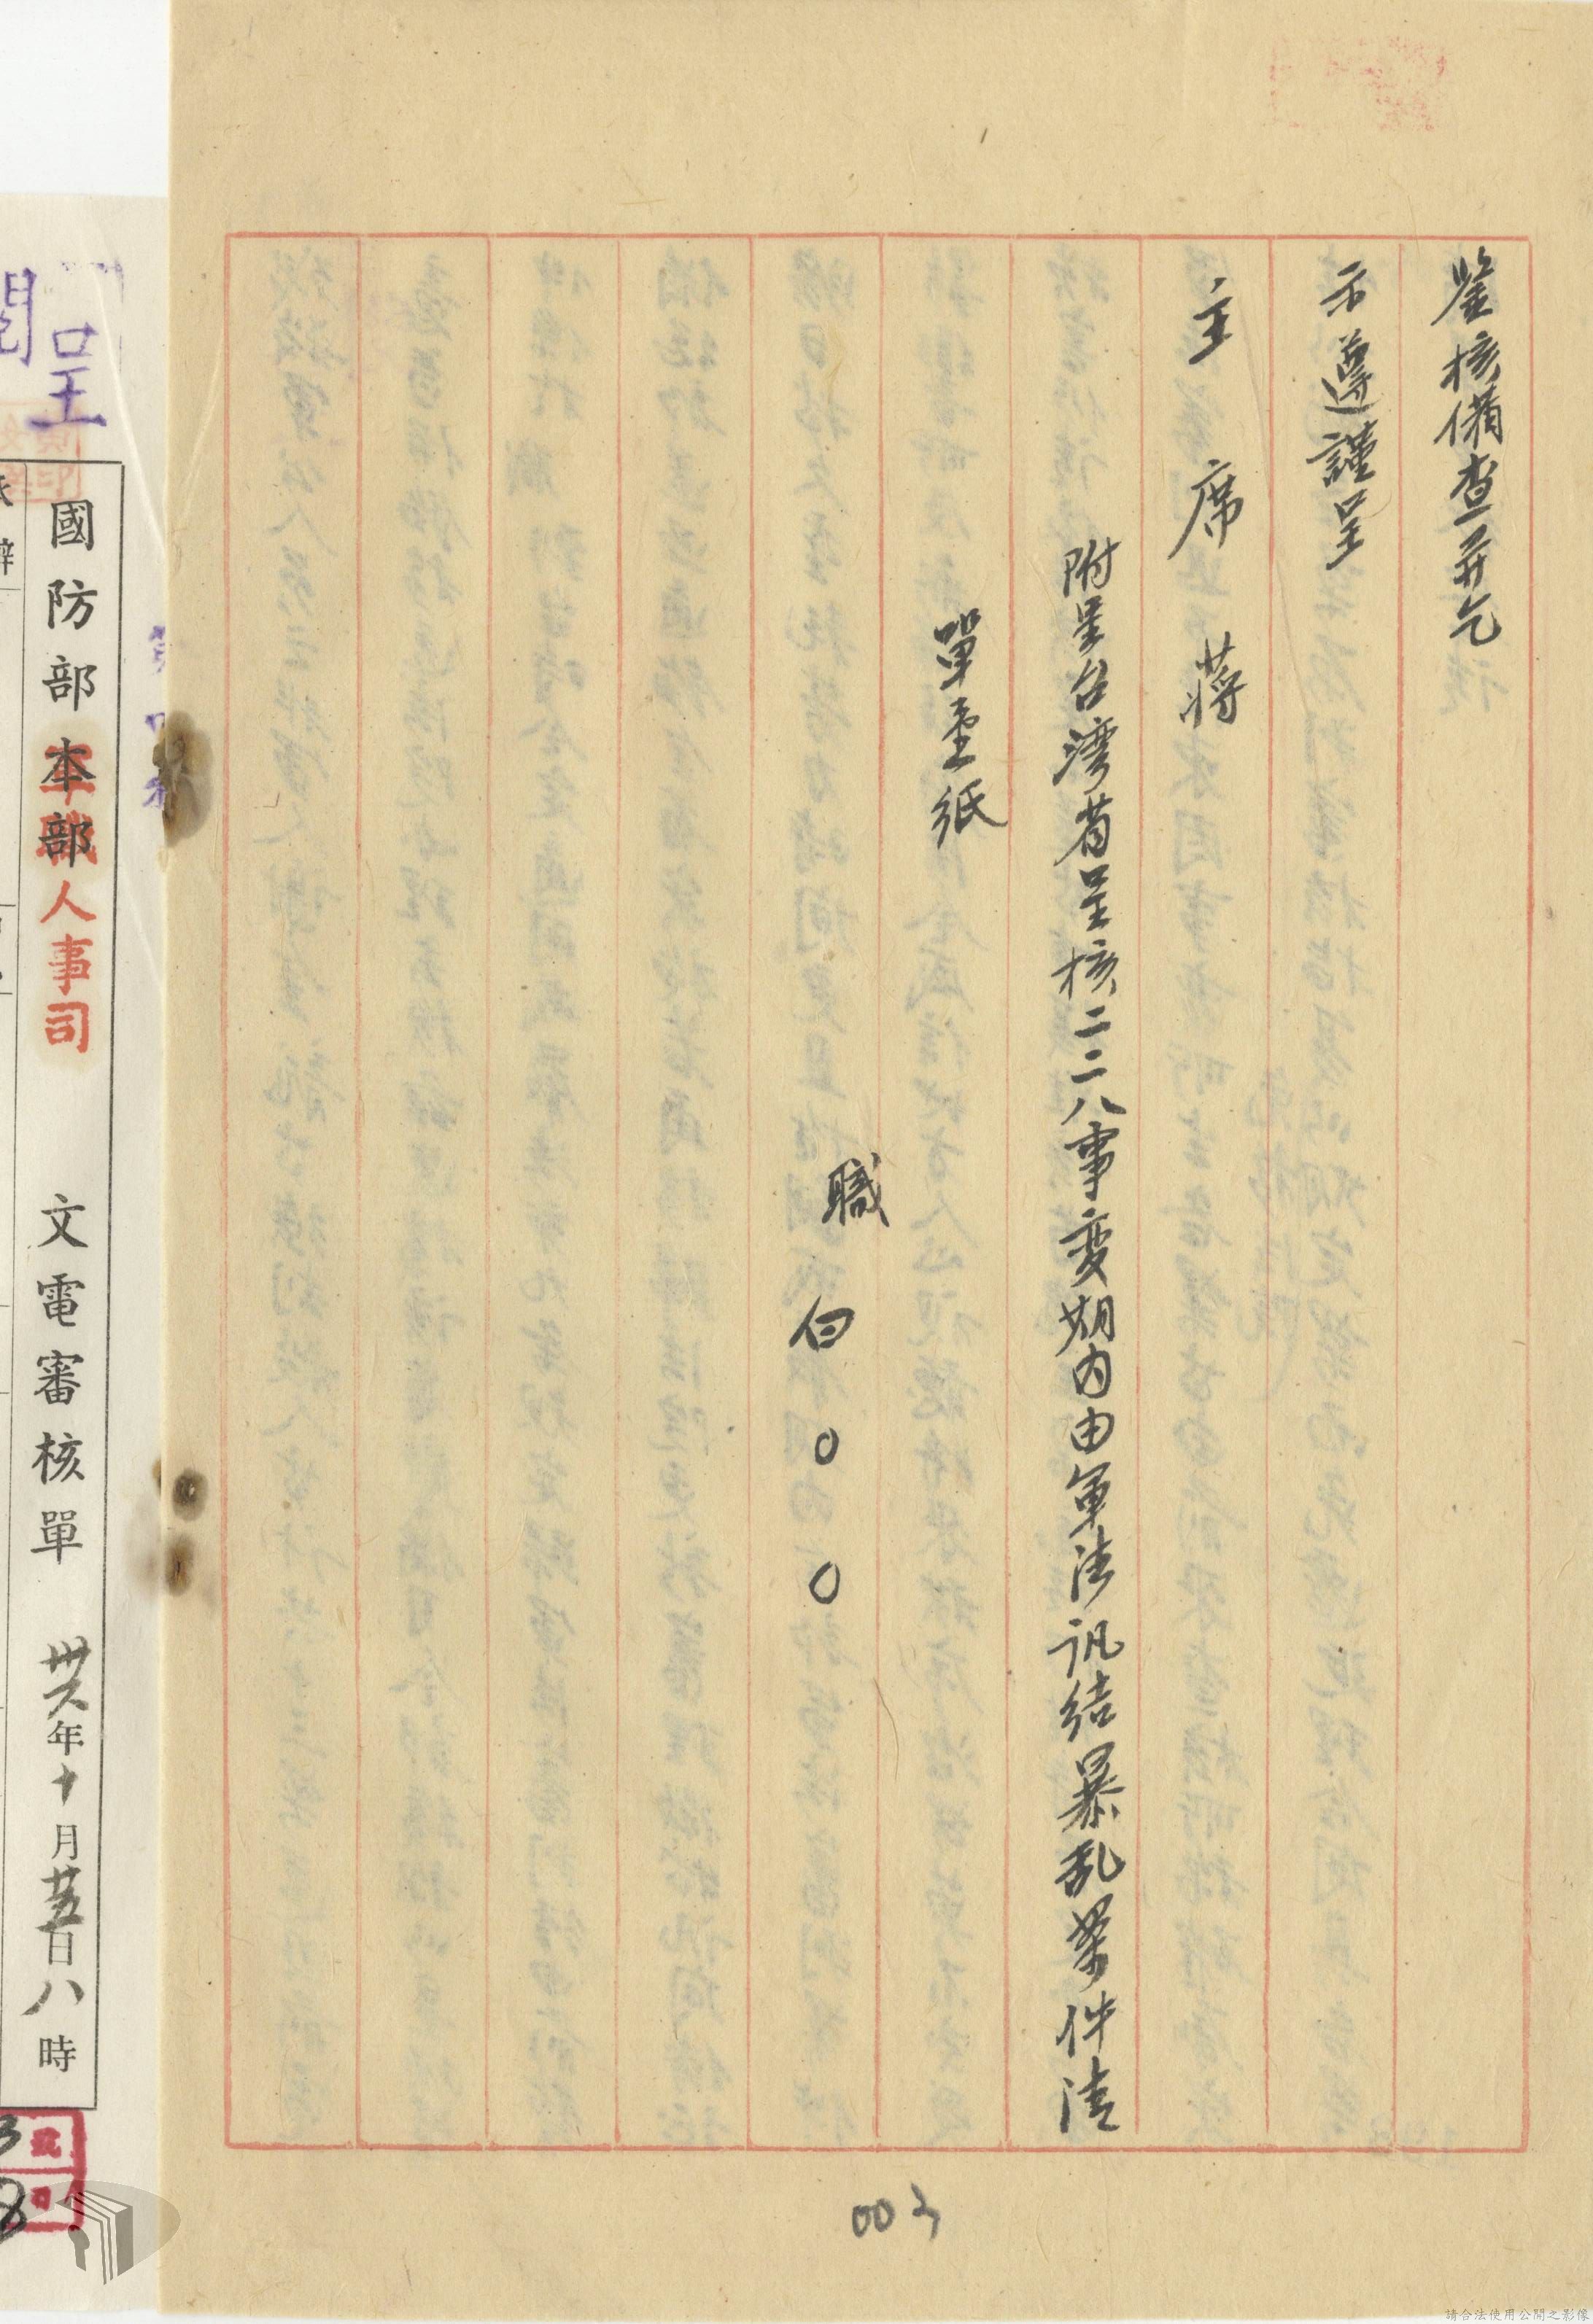 鉴核備查并乞
示遵謹呈
主席蔣
附呈台湾省呈核二二八事变期内由軍法訊结暴乱案件清
單壹紙
職白〇〇
003
呈
閱
國防部本部人事司 文電審核單 卅六年十月廿五日八時
請合法使用公開之影像